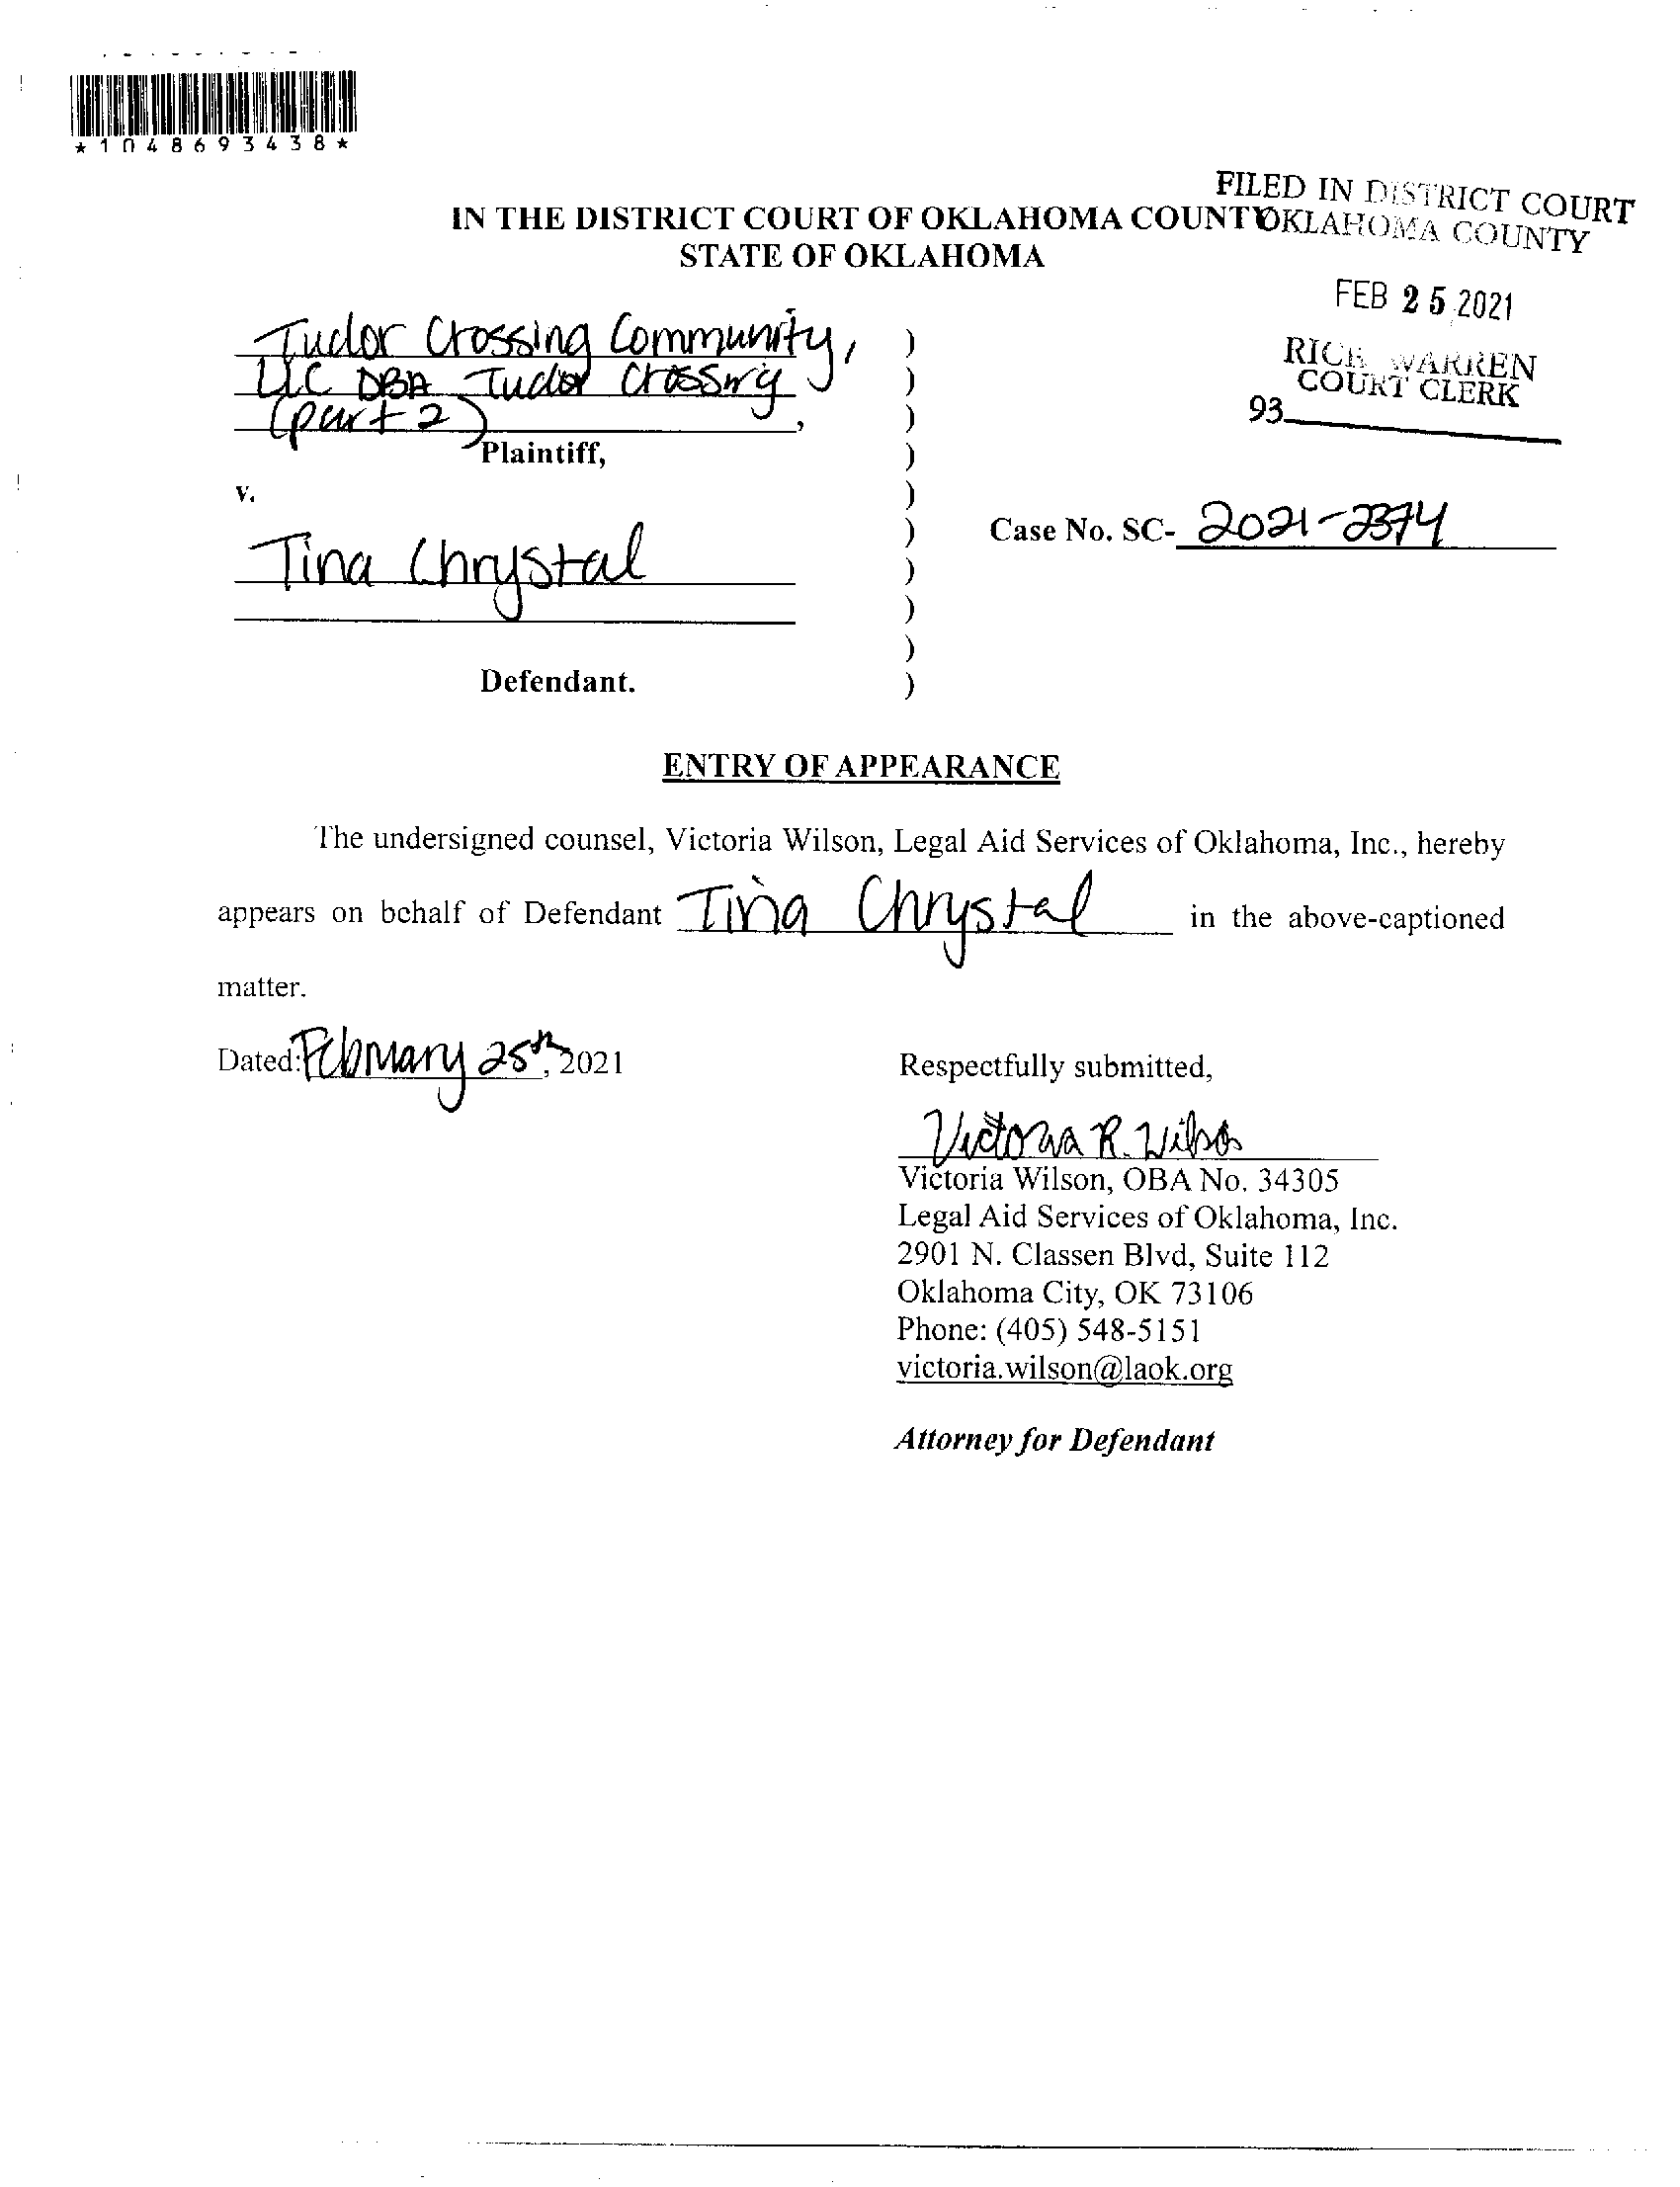 *1048693438*
FILED IN DISTRICT COURT
OKLAHOMA COUNTY
IN THE DISTRICT COURT OF OKLAHOMA COUNTY
STATE OF OKLAHOMA
FEB 25 2021
RICK WARREN
COURT CLERK
93
Tudor Crossing Community,
LLC DBA Tudor Crossing
(part 2)
,
Plaintiff,
v.
Case No. SC- 2021-2374
Tina Chrystal
Defendant.
)
)
)
)
)
)
)
)
)
)
ENTRY OF APPEARANCE
The undersigned counsel, Victoria Wilson, Legal Aid Services of Oklahoma, Inc., hereby
appears on behalf of Defendant Tina Chrystal in the above-captioned
matter.
Dated: February 25th, 2021
Respectfully submitted,
Victoria R. Wilson
Victoria Wilson, OBA No. 34305
Legal Aid Services of Oklahoma, Inc.
2901 N. Classen Blvd, Suite 112
Oklahoma City, OK 73106
Phone: (405) 548-5151
victoria.wilson@laok.org
Attorney for Defendant